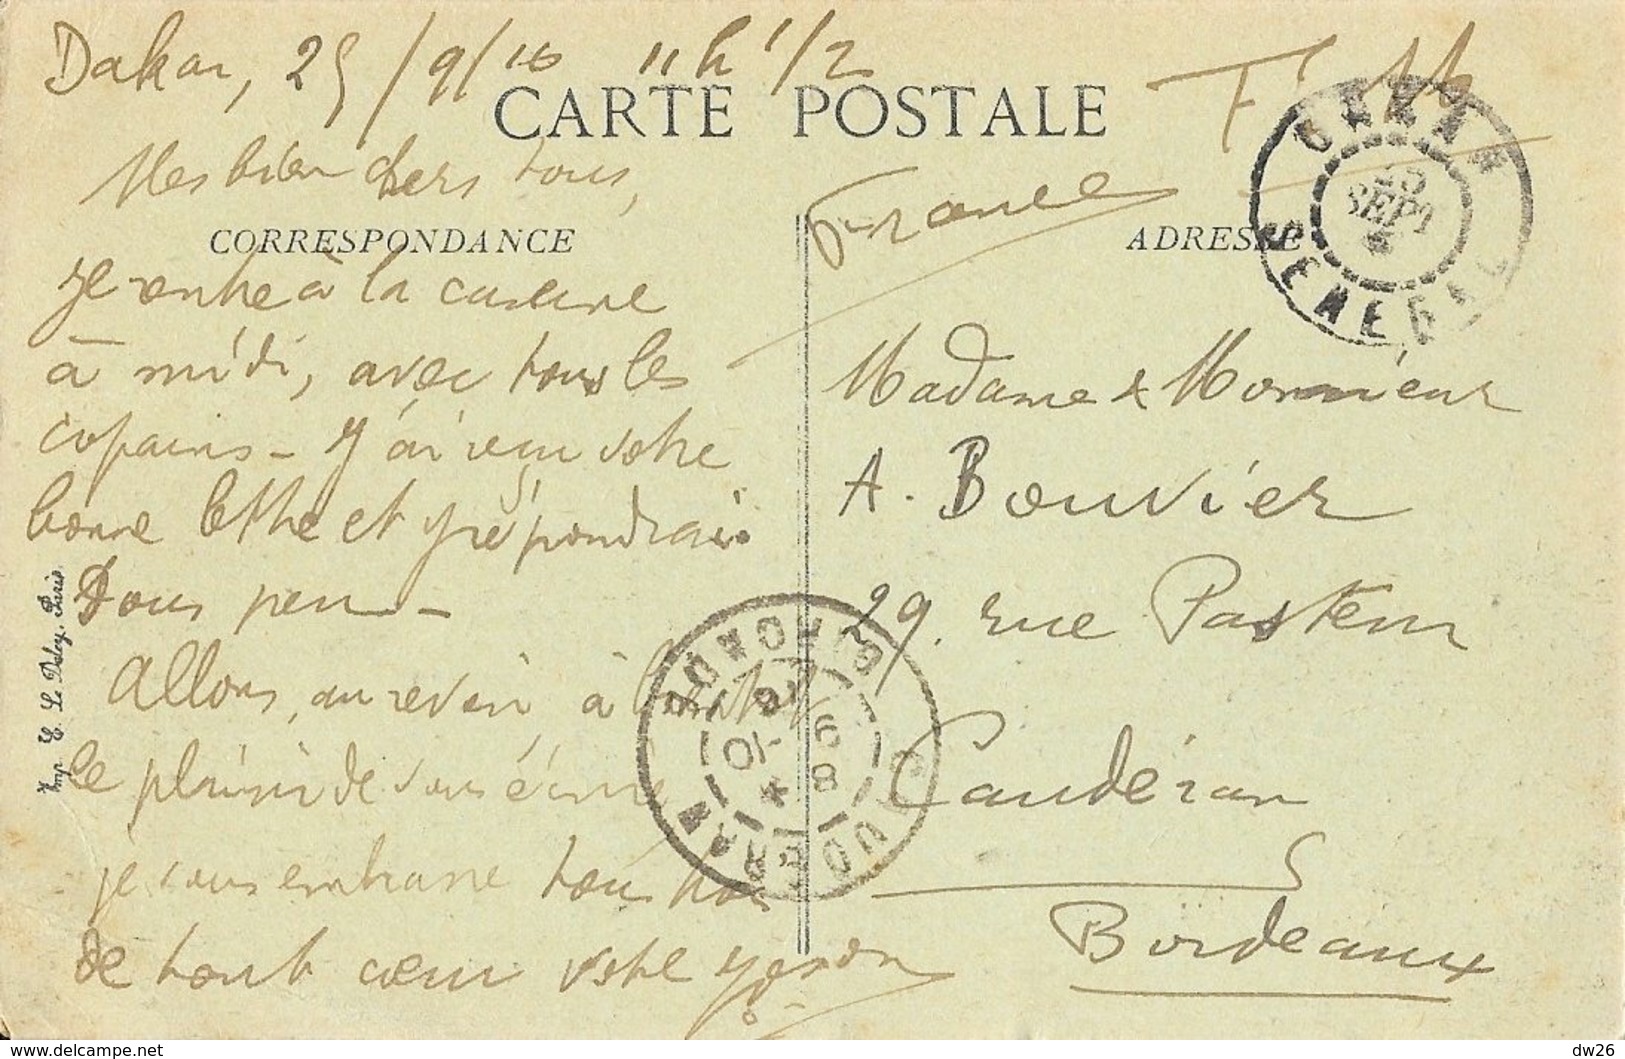 Dakar, 25/9/16 11h 1/2
CARTE POSTALE
F.M
Mes bien chers tous,
France
CORRESPONDANCE
ADRESSE
DAKAR
25
SEPT
SENEGAL
je rentre à la caserne
à midi, avec tous les
copains - J'ai reçu votre
bonne lettre et y répondrai
sous peu -
Allons, au revoir, à bientôt
le plaisir de vous écrire
je vous embrasse tous trois
de tout cœur votre
Madame & Monsieur
A. Bouvier
29. rue Pasteur
Caudéran
Bordeaux
Imp. E. Le Deley, Paris
CAUDERAN
GIRONDE
dw26